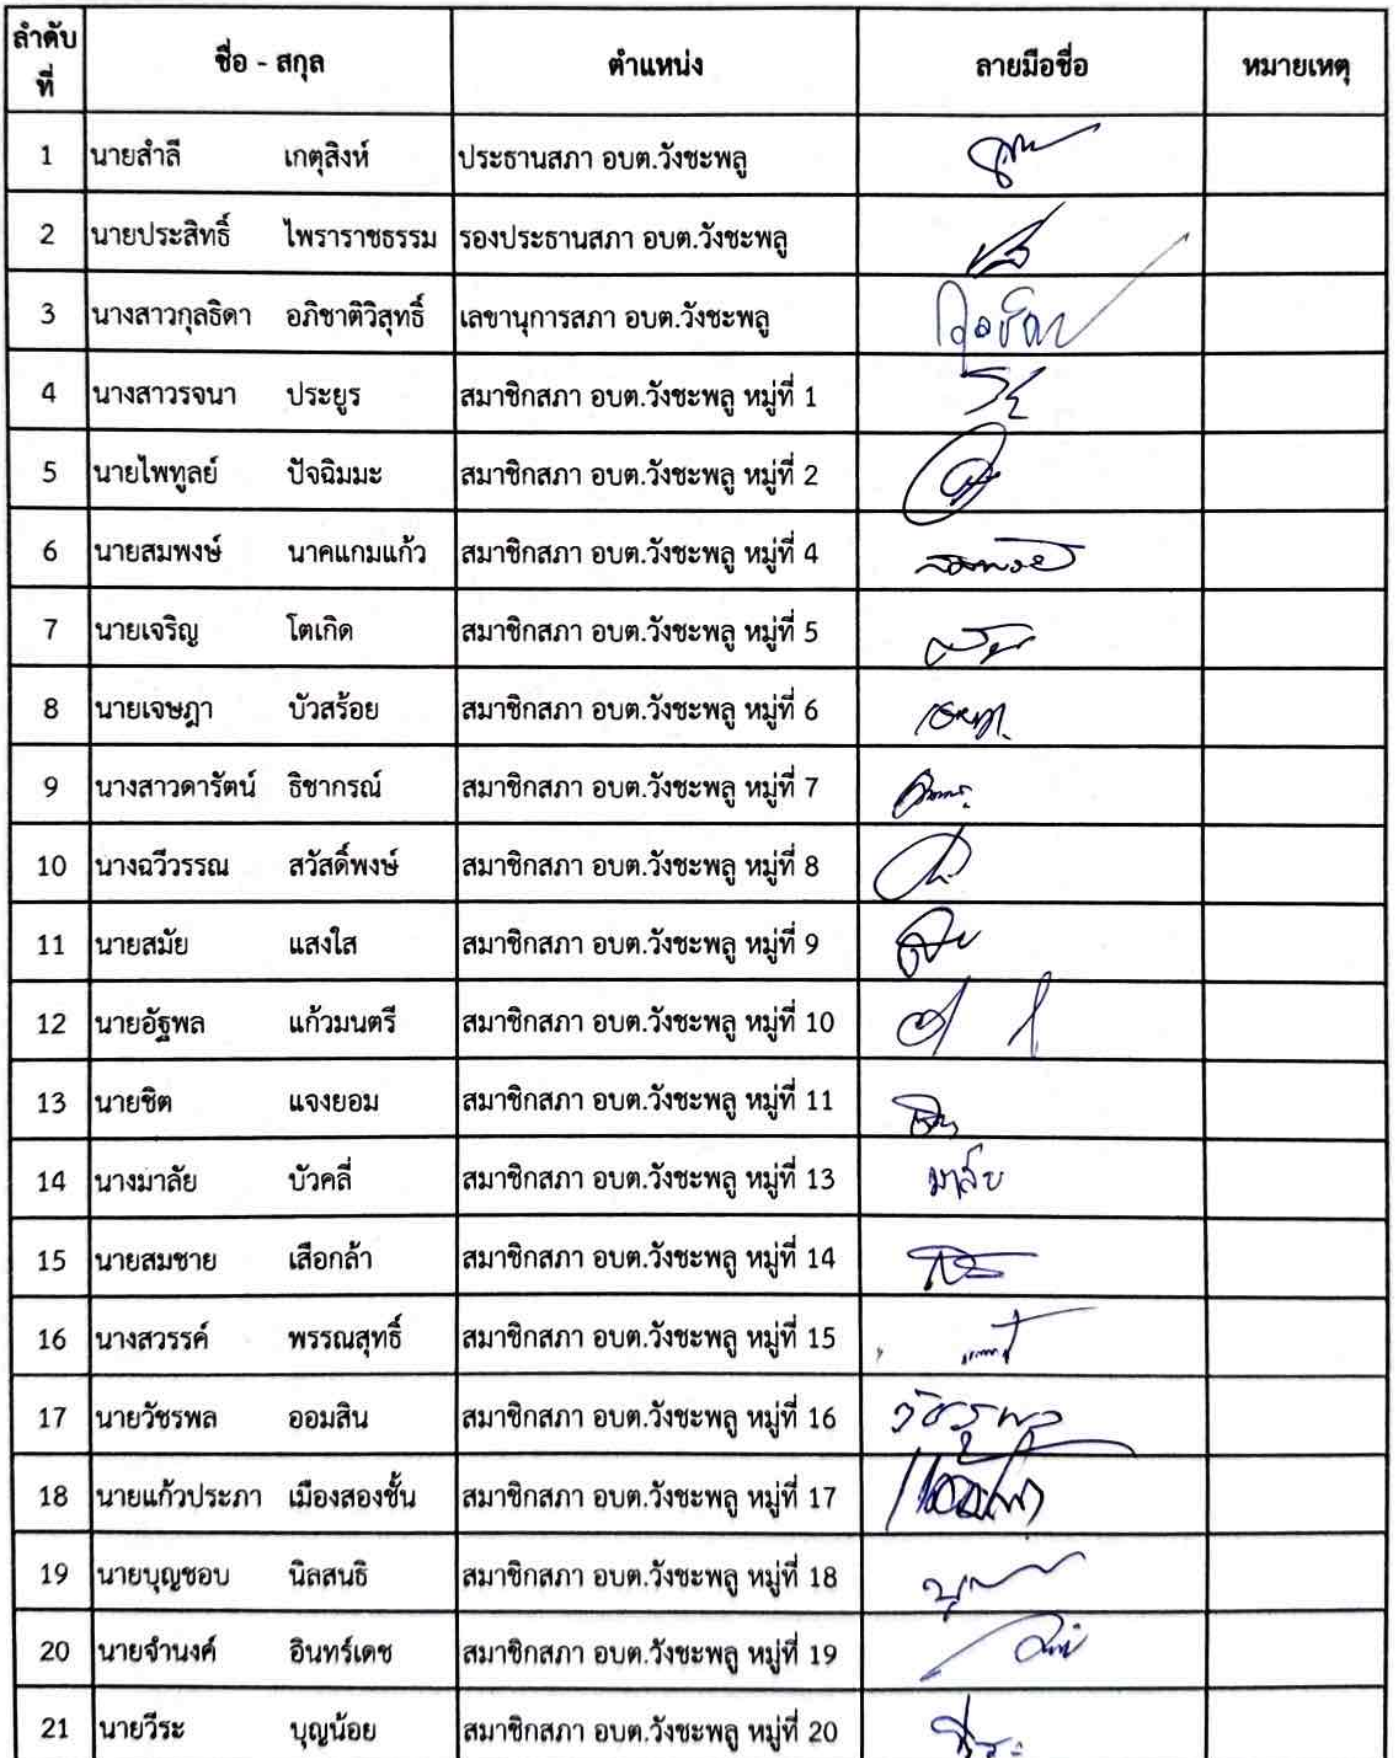 ลำดับที่ ชื่อ - สกุล ตำแหน่ง ลายมือชื่อ หมายเหตุ
1 นายสำลี เกตุสิงห์ ประธานสภา อบต.วังชะพลู
2 นายประสิทธิ์ ไพราราชธรรม รองประธานสภา อบต.วังชะพลู
3 นางสาวกุลธิดา อภิชาติวิสุทธิ์ เลขานุการสภา อบต.วังชะพลู
4 นางสาวรจนา ประยูร สมาชิกสภา อบต.วังชะพลู หมู่ที่ 1
5 นายไพทูลย์ ปัจฉิมมะ สมาชิกสภา อบต.วังชะพลู หมู่ที่ 2
6 นายสมพงษ์ นาคแกมแก้ว สมาชิกสภา อบต.วังชะพลู หมู่ที่ 4
7 นายเจริญ โตเกิด สมาชิกสภา อบต.วังชะพลู หมู่ที่ 5
8 นายเจษฎา บัวสร้อย สมาชิกสภา อบต.วังชะพลู หมู่ที่ 6
9 นางสาวดารัตน์ ธิชากรณ์ สมาชิกสภา อบต.วังชะพลู หมู่ที่ 7
10 นางฉวีวรรณ สวัสดิ์พงษ์ สมาชิกสภา อบต.วังชะพลู หมู่ที่ 8
11 นายสมัย แสงใส สมาชิกสภา อบต.วังชะพลู หมู่ที่ 9
12 นายอัฐพล แก้วมนตรี สมาชิกสภา อบต.วังชะพลู หมู่ที่ 10
13 นายชิต แจงยอม สมาชิกสภา อบต.วังชะพลู หมู่ที่ 11
14 นางมาลัย บัวคลี่ สมาชิกสภา อบต.วังชะพลู หมู่ที่ 13 มาลัย
15 นายสมชาย เสือกล้า สมาชิกสภา อบต.วังชะพลู หมู่ที่ 14
16 นางสวรรค์ พรรณสุทธิ์ สมาชิกสภา อบต.วังชะพลู หมู่ที่ 15
17 นายวัชรพล ออมสิน สมาชิกสภา อบต.วังชะพลู หมู่ที่ 16 วัชรพล
18 นายแก้วประภา เมืองสองชั้น สมาชิกสภา อบต.วังชะพลู หมู่ที่ 17
19 นายบุญชอบ นิลสนธิ สมาชิกสภา อบต.วังชะพลู หมู่ที่ 18
20 นายจำนงค์ อินทร์เดช สมาชิกสภา อบต.วังชะพลู หมู่ที่ 19
21 นายวีระ บุญน้อย สมาชิกสภา อบต.วังชะพลู หมู่ที่ 20